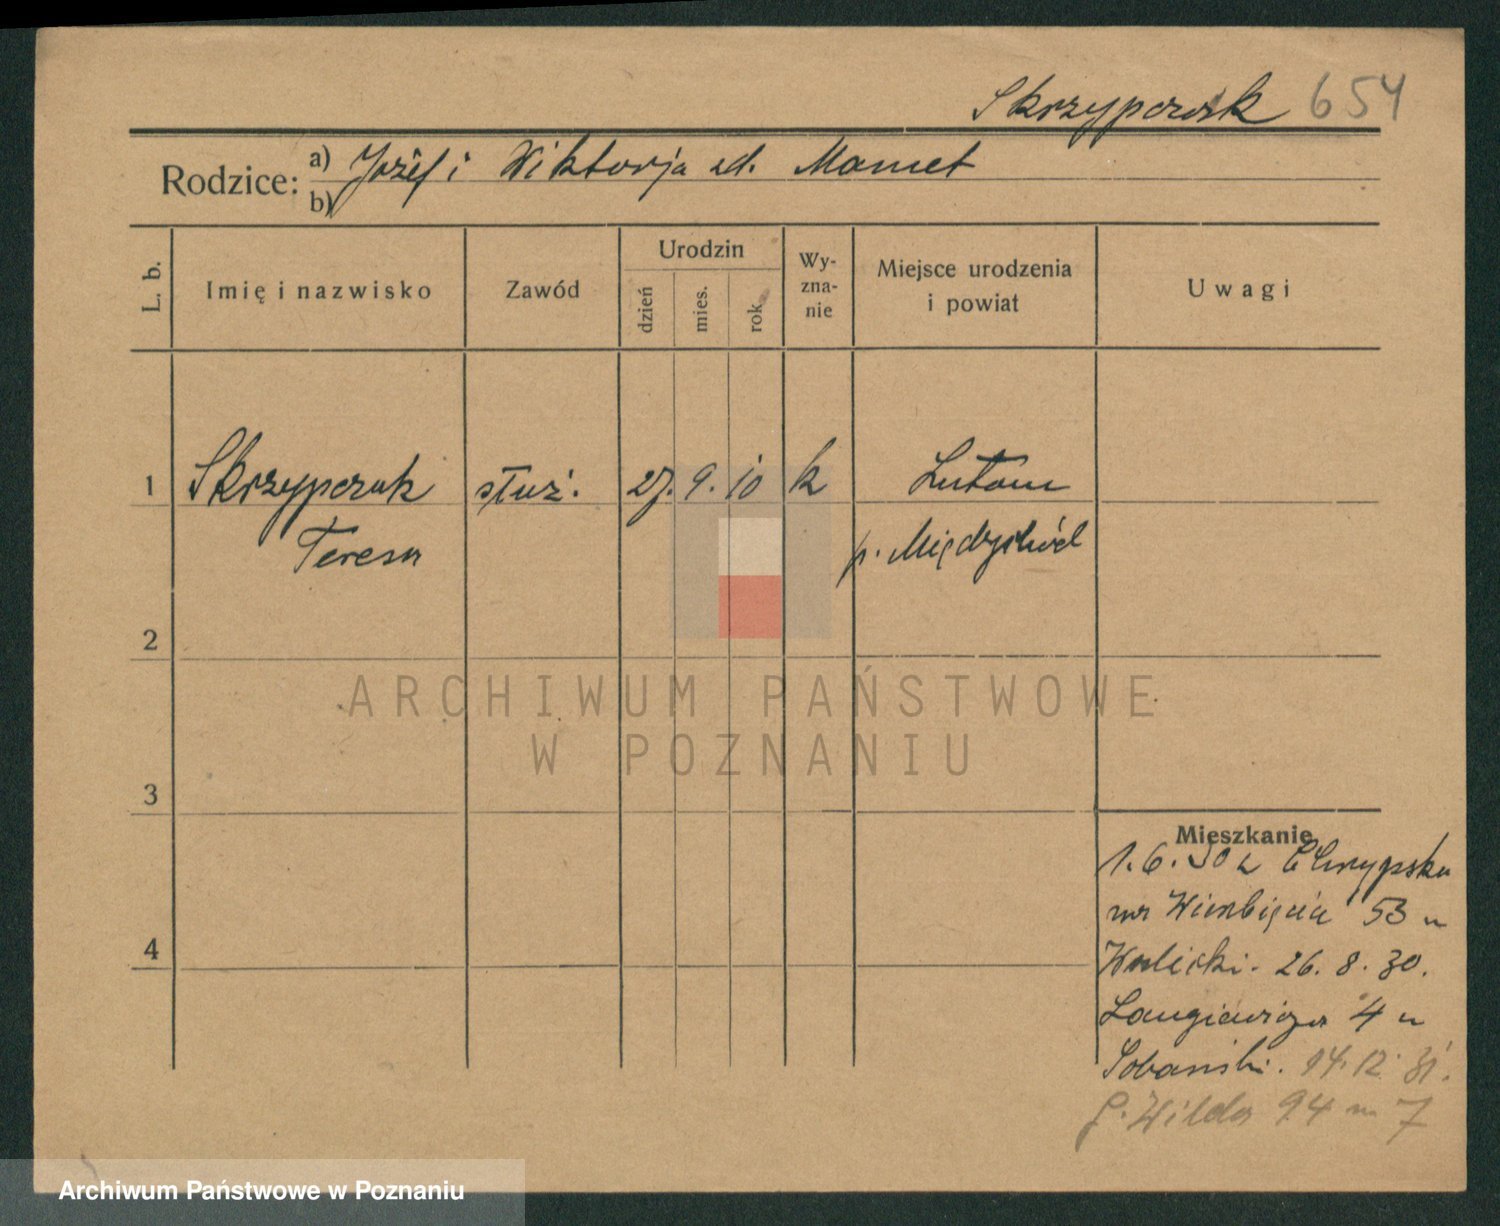 Skrzypczak 654
Rodzice: a) Józef i Wiktorja zd. Mamet
b)
L. b. Imię i nazwisko Zawód Urodzin dzień mies. rok Wy-zna-nie Miejsce urodzenia i powiat Uwagi
1 Skrzypczak służ. 27. 9. 10 k Lutom
Teresa p. Międzychód
2
ARCHIWUM PAŃSTWOWE
W POZNANIU
3
Mieszkanie
1.6.30 z Chrzypska
na Wierzbięcic 53 u
4
Walicki. 26. 8. 30.
Langiewicza 4 u
Sobański. 14. 12. 31.
G. Wilda 94 m 7
Archiwum Państwowe w Poznaniu